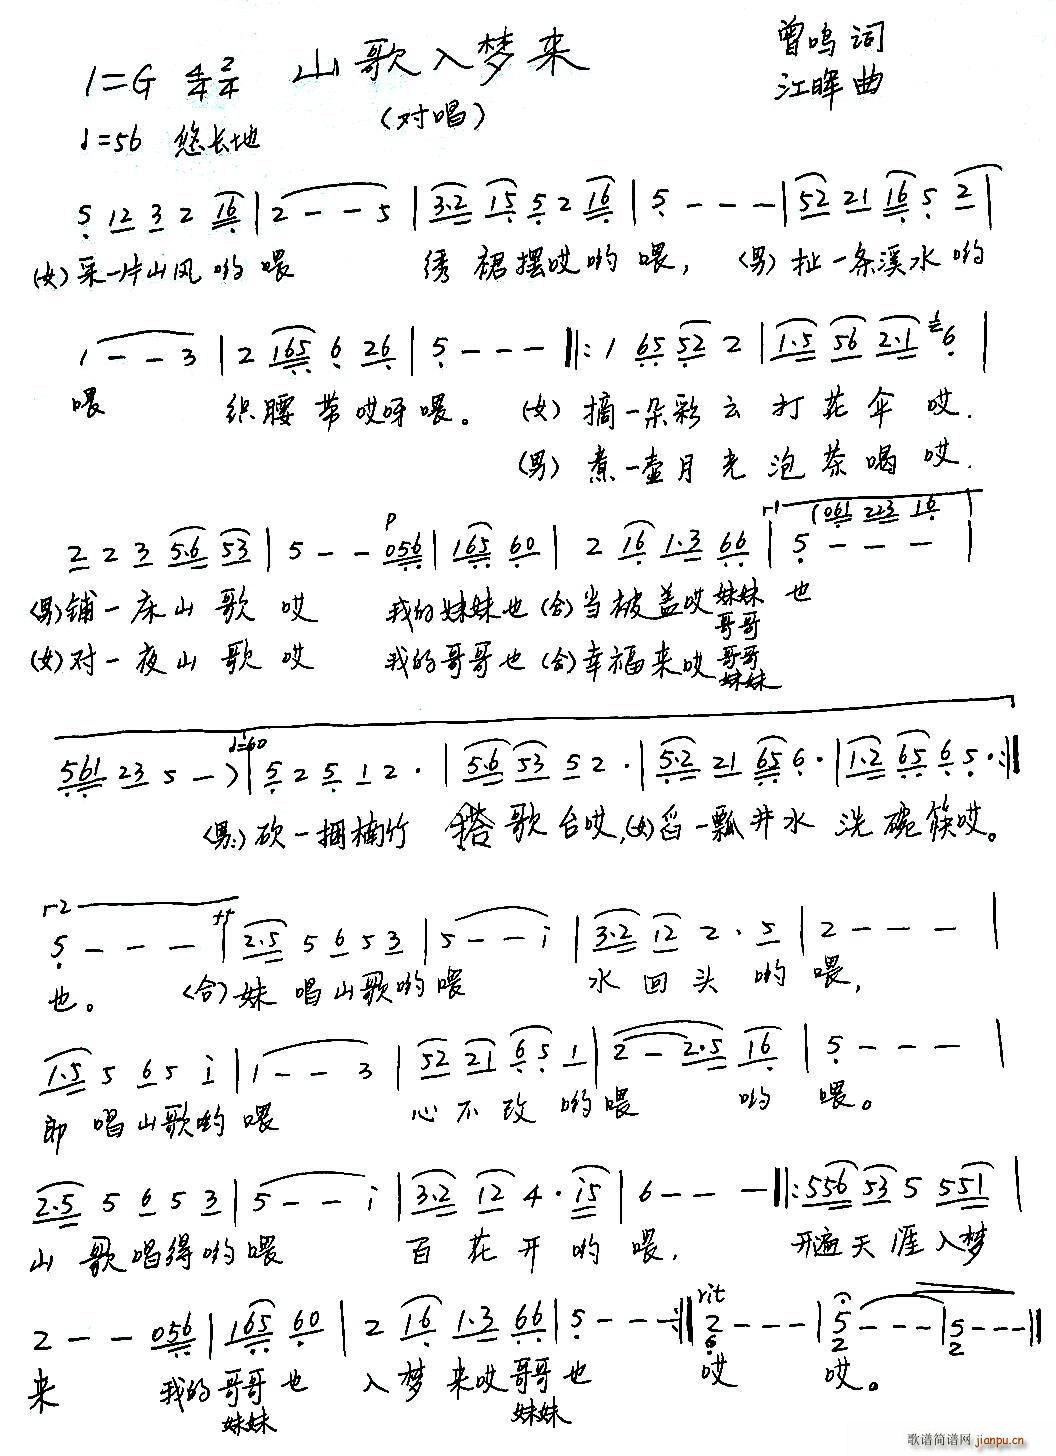 山歌入梦来
曾鸣词
1=G 4/4 2/4
江晖曲
(对唱)
♩=56 悠长地
5 12 3 2 16 | 2 - - 5 | 3·2 15 5 2 16 | 5 - - - | 52 21 16 5 2 |
(女)采一片山风哟喂 绣裙摆哎哟喂, (男)扯一条溪水哟
1 - - 3 | 2 165 6 26 | 5 - - - ‖: 1 65 52 2 | 1·5 56 2·1 6 |
喂 织腰带哎呀喂。 (女)摘一朵彩云打花伞哎.
(男)煮一壶月光泡茶喝哎.
(061 223 16
2 2 3 5·6 53 | 5 - - 056 | 165 60 | 2 16 1·3 66 | 5 - - - |
p
(男)铺一床山歌哎 我的妹妹也(合)当被盖哎妹妹也
哥哥
(女)对一夜山歌哎 我的哥哥也(合)幸福来哎哥哥
妹妹
♩=60
561 23 5 -) | 5 2 5 1 2· | 5·6 53 5 2· | 5·2 21 65 6· | 1·2 65 6 5· :‖
(男)砍一捆楠竹 搭歌台哎,(女)舀一瓢井水洗碗筷哎。
5 - - - | 2·5 5 6 5 3 | 5 - - i | 3·2 12 2· 5 | 2 - - - |
也。 (合)妹唱山歌哟喂 水回头哟喂,
1·5 5 65 i | 1 - - 3 | 52 21 65 1 | 2 - 2·5 16 | 5 - - - |
郎唱山歌哟喂 心不改哟喂 哟喂。
2·5 5 6 5 3 | 5 - - i | 3·2 12 4· i5 | 6 - - - ‖: 556 53 5 551 |
山歌唱得哟喂 百花开哟喂, 开遍天涯入梦
rit
2 - - 056 | 165 60 | 2 16 1·3 66 | 5 - - - :‖ 2 - - - | 5 - - - | 5 - - - ‖
6 2 2
来 我的哥哥也 入梦来哎哥哥也 哎 哎。
妹妹 妹妹
歌谱简谱网
jianpu.cn